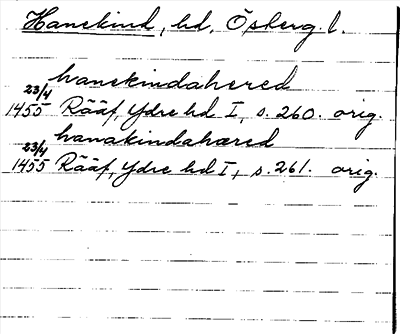 Hanekind, hd, Ösberg. l.
hanekindahered
23/4
1455 Rääf, Ydre hd I, s. 260. orig.
hanakindahæred
23/4
1455 Rääf, Ydre hd I, s. 261. orig.